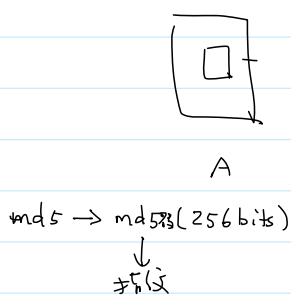 A
md5 → md5码(256bits)
↓